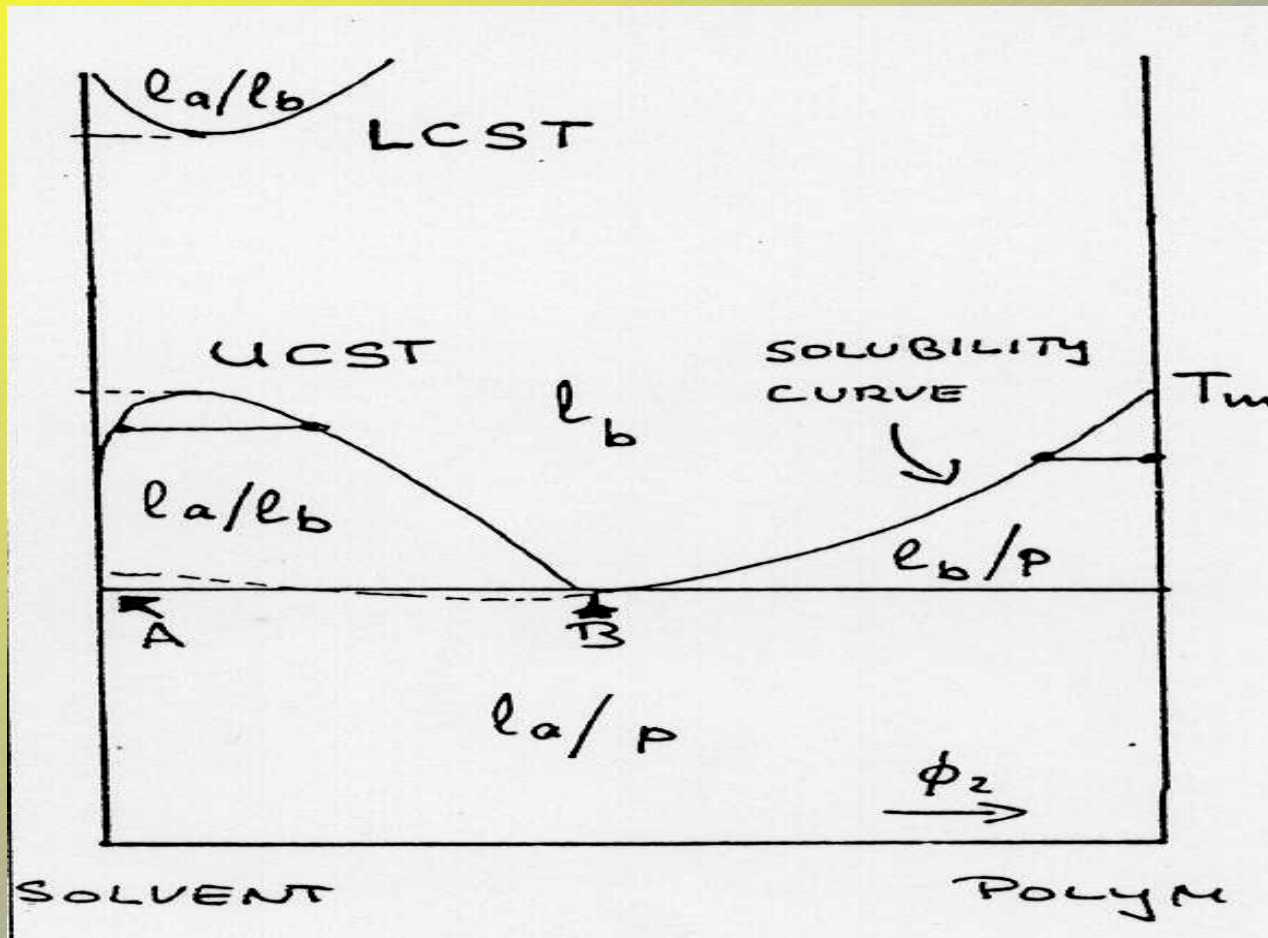 la/lb
LCST
UCST
SOLUBILITY
CURVE
Tm
lb
la/lb
lb/P
A
B
la/P
ϕ2
SOLVENT
POLYM